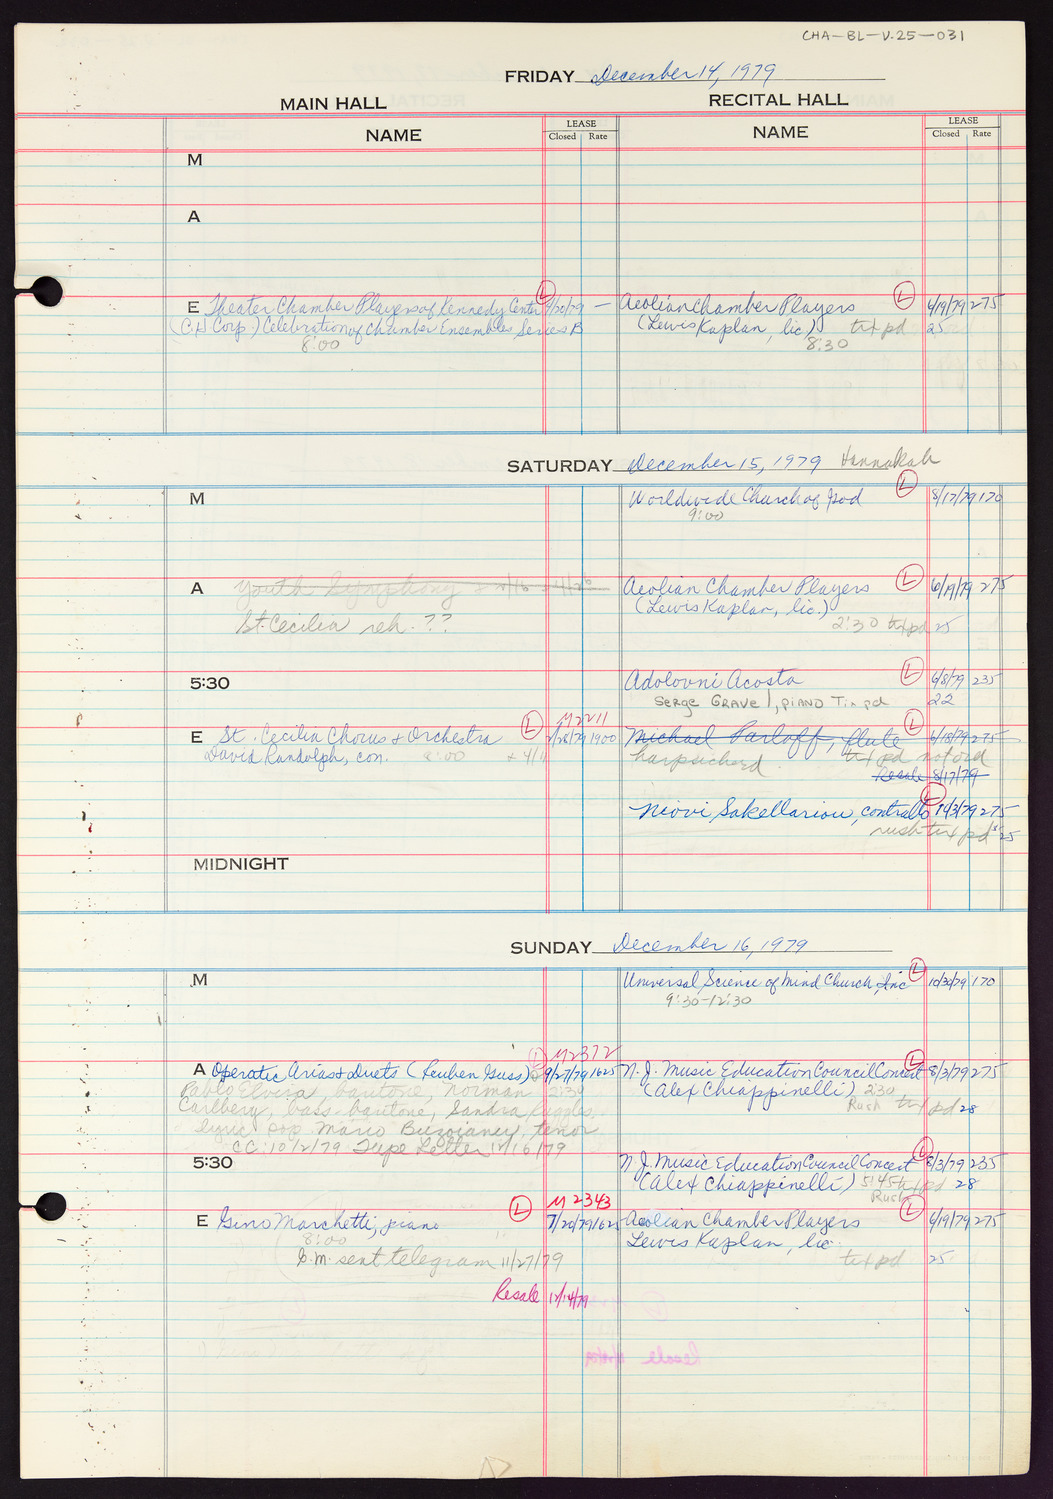 CHA-BL-V.25-031
FRIDAY December 14, 1979
MAIN HALL
RECITAL HALL
NAME
LEASE
Closed Rate
NAME
LEASE
Closed Rate
M
A
E Theater Chamber Players of Kennedy Center L 9/20/79 —
(C.H. Corp.) Celebration of Chamber Ensembles, Series B
8:00
Aeolian Chamber Players L 6/19/79 275
(Lewis Kaplan, lic) txt pd 25
8:30
SATURDAY December 15, 1979 Hannukah
M
Worldwide Church of God L 8/17/79 170
9:00
A Youth Symphony
St. Cecilia reh. ??
Aeolian Chamber Players L 6/19/79 275
(Lewis Kaplan, lic.)
2:30 txt pd 25
5:30
Adolovni Acosta L 6/8/79 235
Serge Gravel, piano Tix pd 22
M2211
E St. Cecilia Chorus & Orchestra L 1900
David Randolph, con. 8:00 + 4/11
Michael Parloff, flute L 6/18/79 275
harpsichord txt pd not ord
Resale 8/17/79
Niovi Sakellariou, contralto L 10/3/79 275
rush txt pd 25
MIDNIGHT
SUNDAY December 16, 1979
M
Universal Science of Mind Church, Inc L 10/30/79 170
9:30-12:30
M2372
A Operatic Arias & Duets (Reuben Guss) L 9/27/79 1625
Pablo Elvira, baritone, Norman 2:30
Carlberg, bass-baritone, Sandra Ruggles,
lyric sop Mario tenor
CC: 10/2/79 Tape Letter 11/16/79
N.J. Music Education Council Concert L 8/3/79 275
(Alex Chiappinelli) 2:30
Rush txt pd 28
5:30
N.J. Music Education Council Concert L 8/3/79 235
(Alex Chiappinelli) 5:45 txt pd 28
Rush
M2343
E Gino Marchetti, piano L 7/20/79 1625
8:00
G.M. sent telegram 11/27/79
Resale 12/14/79
Aeolian Chamber Players L 6/19/79 275
Lewis Kaplan, lic.
txt pd 25